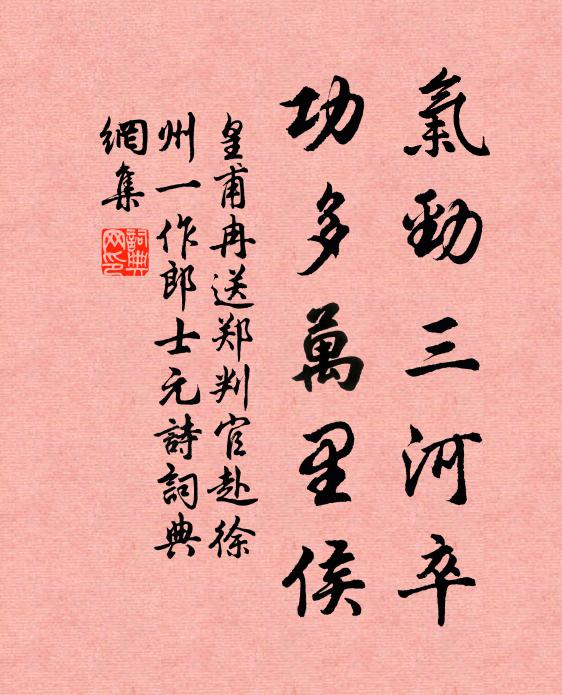 氣勁三河卒
功多萬里侯
皇甫冉送郑判官赴徐
州一作郎士元詩詞典
網集
詞典
网印